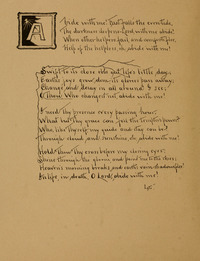 Abide with me! fast falls the eventide,
The darkness deepens; Lord, with me abide!
When other helpers fail, and comforts flee,
Help of the helpless, O, abide with me!
Swift to its close ebbs out life's little day;
Earth's joys grow dim, its glories pass away;
Change and decay in all around I see;
O Thou Who changest not abide with me!
I need thy presence every passing hour;
What but thy grace can foil the tempter's power?
Who, like thyself my guide and stay can be?
Through cloud and sunshine, abide with me!
Hold thou thy cross before my closing eyes!
Shine through the gloom and point me to the skies;
Heaven's morning breaks, and earth's vain shadows flee!
In life, in death, O Lord, abide with me!
Lyte.